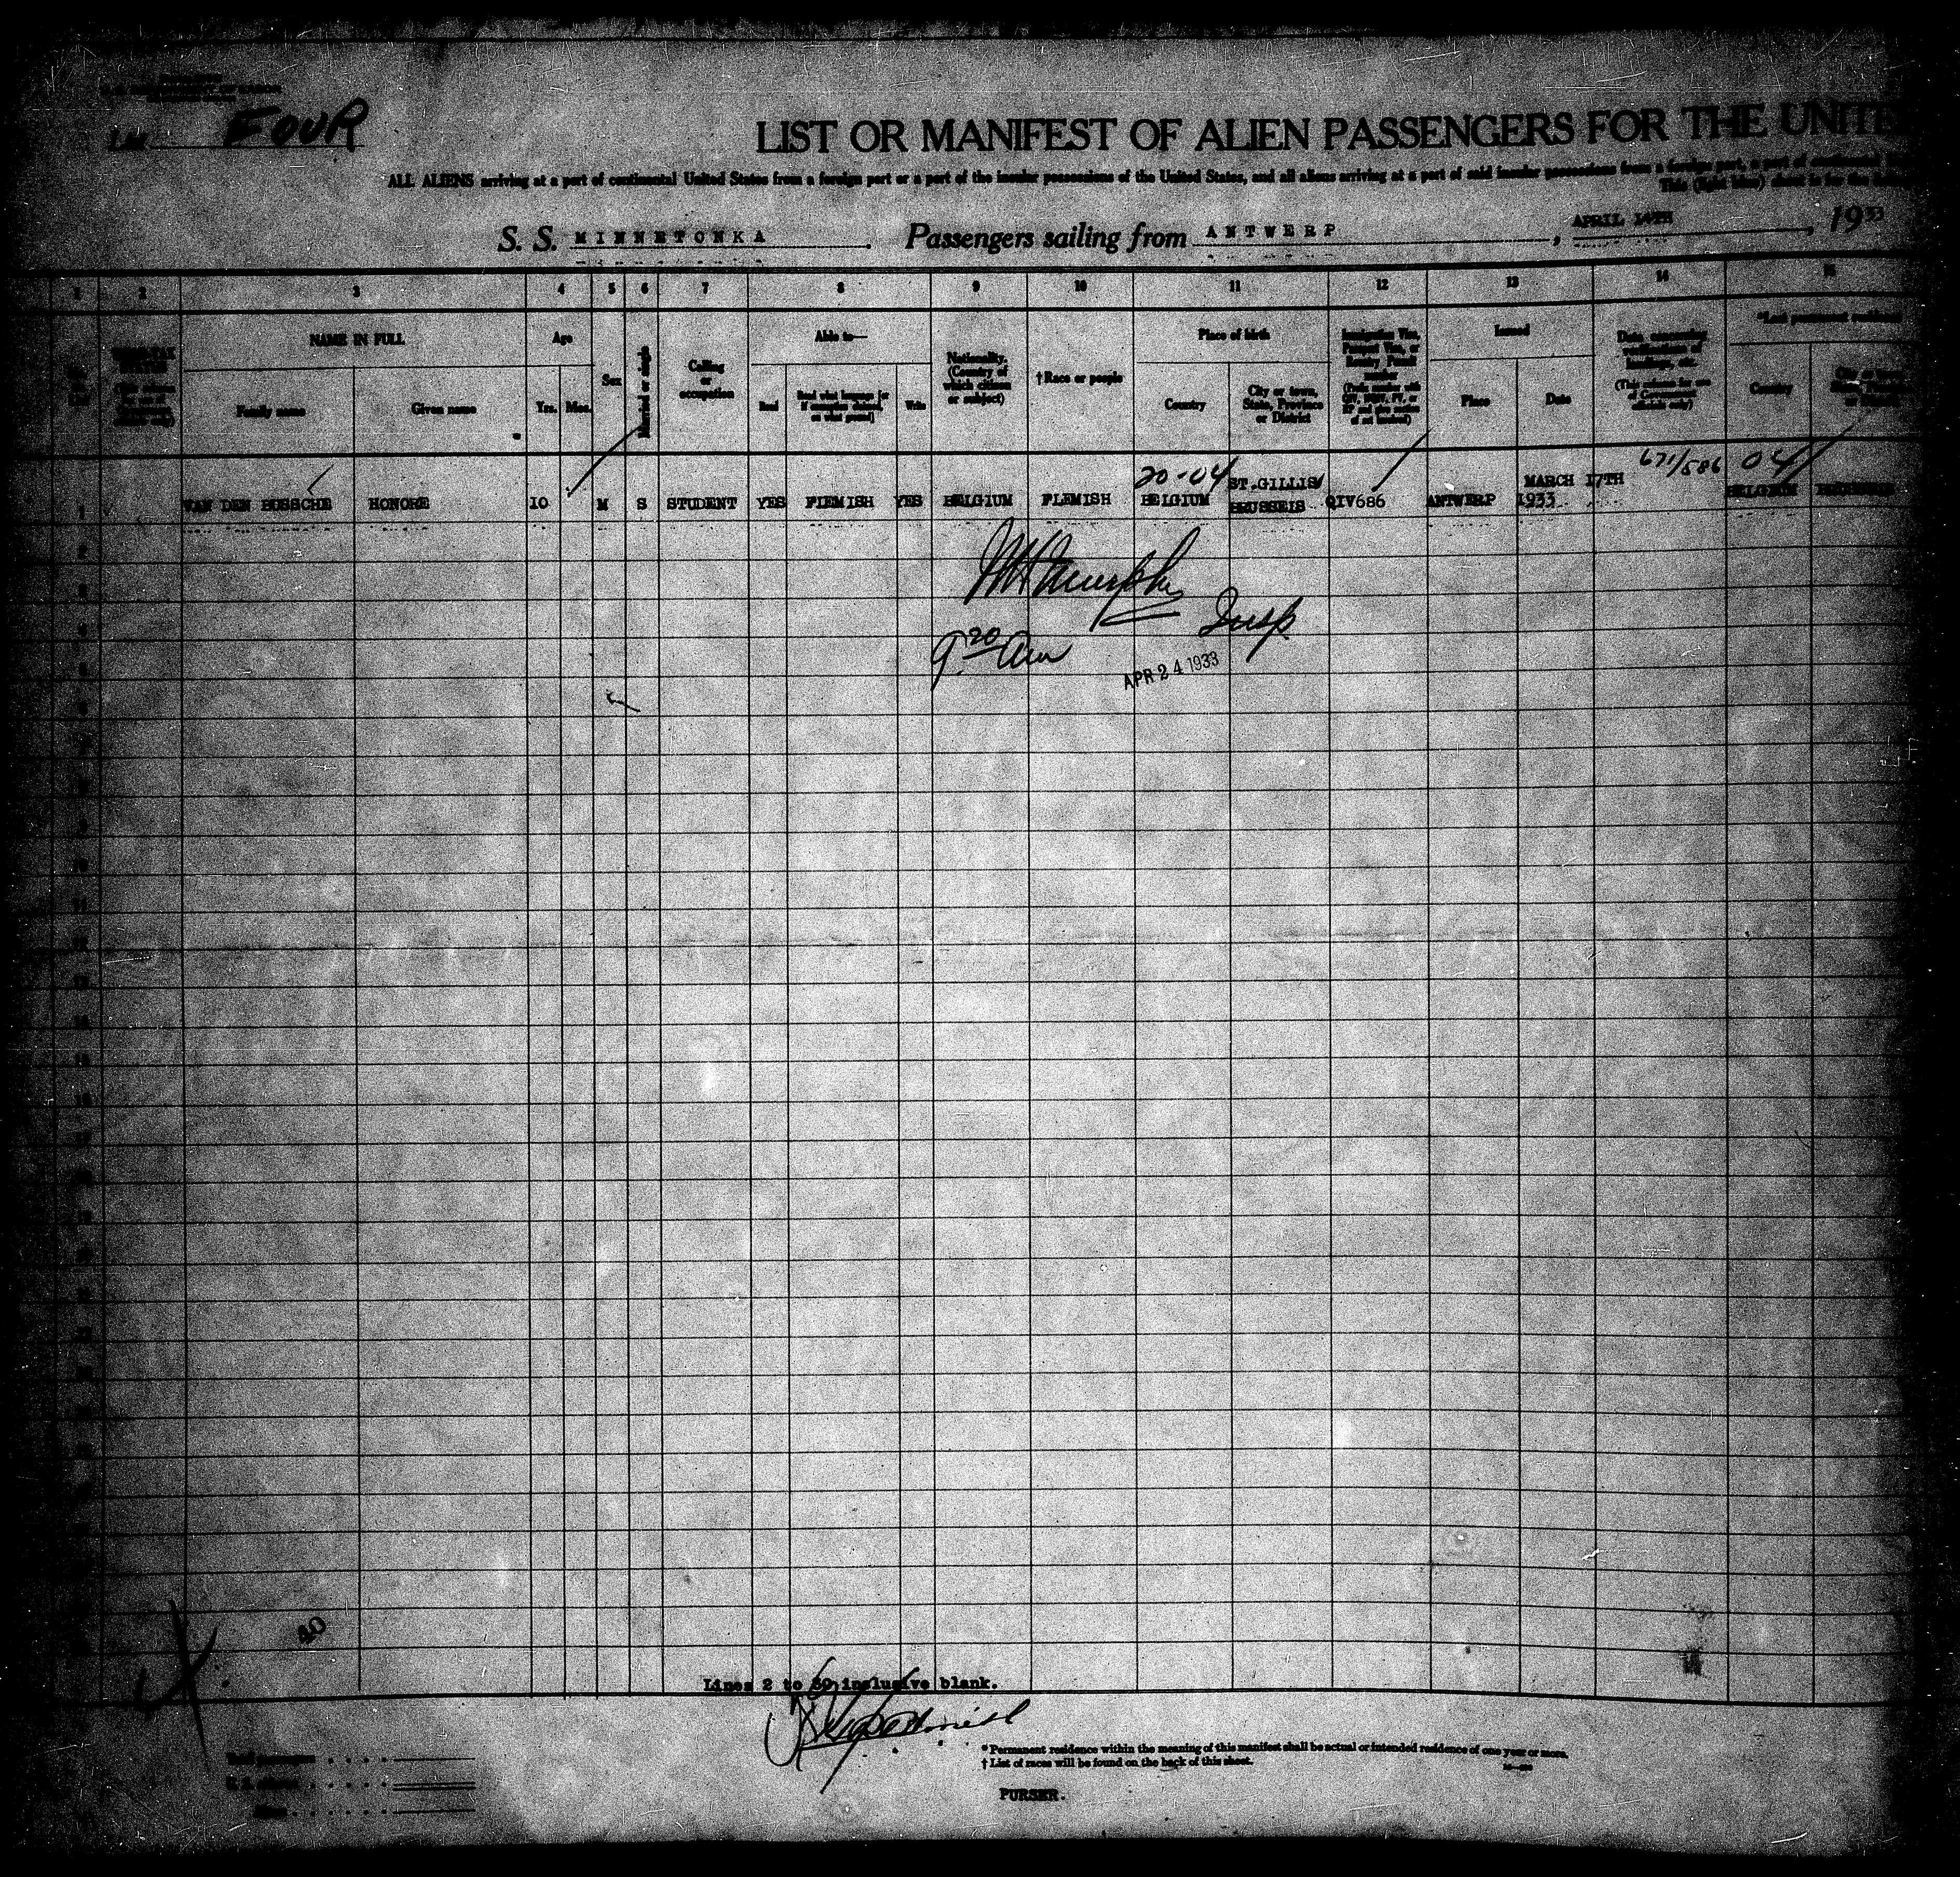 List FOUR
LIST OR MANIFEST OF ALIEN PASSENGERS FOR THE UNITE
ALL ALIENS arriving at a port of continental United States from a foreign port or a port of the insular possessions of the United States, and all aliens arriving at a port of said insular possessions from a foreign port, a port of continental
This (light blue) sheet is for the
S. S. MINNETONKA . Passengers sailing from ANTWERP , APRIL 14TH , 1933
1 2 3 4 5 6 7 8 9 10 11 12 13 14 15
NAME IN FULL Age Sex Married or single Calling or occupation Able to— Nationality. (Country of which citizen or subject) †Race or people Place of birth Issued *Last permanent residence
Family name Given name Yrs. Mos. Read Read what language [or if exemption claimed, on what ground] Write Country City or town, State, Province or District Place Date (This column for use of Government officials only) Country
20-04 671/586 04
1 VAN DEN BOSSCHE HONORE 10 M S STUDENT YES FLEMISH YES BELGIUM FLEMISH BELGIUM ST.GILLIS BRUSSELS QIV686 ANTWERP MARCH 17TH 1933 BELGIUM BRUSSELS
Murphy
Insp
9.20 am
APR 24 1933
2
3
4
5
6
7
8
9
10
11
12
13
14
15
16
17
40
Lines 2 to 30 inclusive blank.
Total passengers
U. S. citizens
Aliens
* Permanent residence within the meaning of this manifest shall be actual or intended residence of one year or more.
† List of races will be found on the back of this sheet.
PURSER.